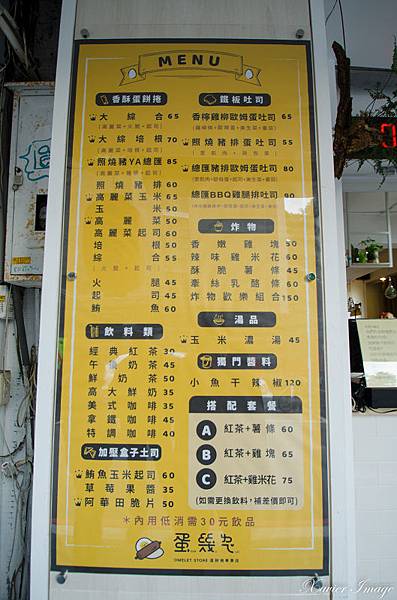 MENU
香酥蛋餅捲
大綜合 65
(高麗菜+火腿+起司)
大綜培根 70
(高麗菜+培根+起司)
照燒豬YA總匯 85
照燒豬排 60
高麗菜玉米 65
玉米 50
高麗菜 50
高麗菜起司 60
培根 50
綜合 55
(火腿+起司)
火腿 45
起司 45
鮪魚 60
飲料類
經典紅茶 30
午後奶茶 45
鮮奶茶 50
高大鮮奶 35
美式咖啡 35
拿鐵咖啡 45
特調咖啡 40
加壓盒子土司
鮪魚玉米起司 60
草莓果醬 35
阿華田脆片 50
鐵板吐司
香檸雞柳歐姆蛋吐司 65
照燒豬排蛋吐司 55
總匯豬排歐姆蛋吐司 80
總匯BBQ雞腿排吐司 90
炸物
香嫩雞塊 50
辣味雞米花 50
酥脆薯條 45
牽絲乳酪條 60
炸物歡樂組合 150
湯品
玉米濃湯 45
獨門醬料
小魚干辣椒 120
搭配套餐
A 紅茶+薯條 60
B 紅茶+雞塊 65
C 紅茶+雞米花 75
(如需更換飲料,補差價即可)
*內用低消需30元飲品
蛋幾ㄉ
OMELET STORE
Xavier Image